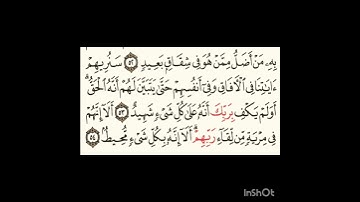 بِهِۦ مَنۡ أَضَلُّ مِمَّنۡ هُوَ فِي شِقَاقِۭ بَعِيدٖ ٥٢ سَنُرِيهِمۡ
ءَايَٰتِنَا فِي ٱلۡأٓفَاقِ وَفِيٓ أَنفُسِهِمۡ حَتَّىٰ يَتَبَيَّنَ لَهُمۡ أَنَّهُ ٱلۡحَقُّۗ
أَوَلَمۡ يَكۡفِ بِرَبِّكَ أَنَّهُۥ عَلَىٰ كُلِّ شَيۡءٖ شَهِيدٌ ٥٣ أَلَآ إِنَّهُمۡ
فِي مِرۡيَةٖ مِّن لِّقَآءِ رَبِّهِمۡۗ أَلَآ إِنَّهُۥ بِكُلِّ شَيۡءٖ مُّحِيطُۢ ٥٤
InShOt